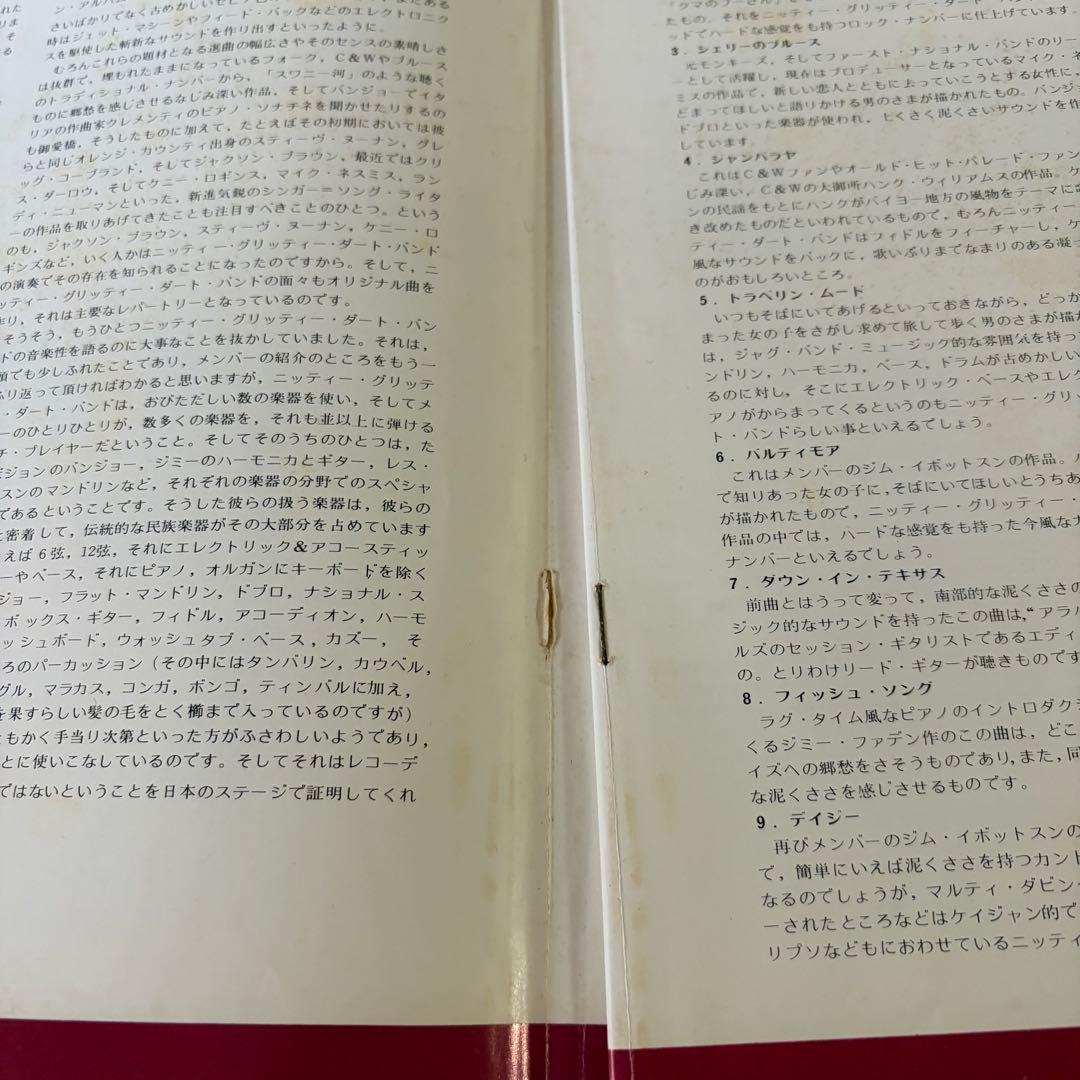 時はジェット・マシーンやフィード・バックなどのエレクトロニク
スを駆使した斬新なサウンドを作り出すといったように。
むろんこれらの題材となる選曲の幅広さやそのセンスの素晴しさ
は抜群で，埋もれたままになっているフォーク，C&Wやブルース
のトラディショナル・ナンバーから，「スワニー河」のような聴く
ものに郷愁を感じさせるなじみ深い作品，そしてバンジョーでイタ
リアの作曲家クレメンティのピアノ・ソナチネを聞かせたりするの
も御愛橋，そうしたものに加えて，たとえばその初期においては彼
らと同じオレンジ・カウンティ出身のスティーヴ・ヌーナン，グレ
ッグ・コープランド，そしてジャクソン・ブラウン，最近ではクリ
ス・ダーロウ，そしてケニー・ロギンス，マイク・ネスミス，ラン
ディ・ニューマンといった，新進気鋭のシンガー＝ソング・ライタ
ーの作品を取りあげてきたことも注目すべきことのひとつ。という
のも，ジャクソン・ブラウン，スティーヴ・ヌーナン，ケニー・ロ
ギンズなど，いく人かはニッティー・グリッティー・ダート・バンド
の演奏でその存在を知られることになったのですから。そして，ニ
ッティー・グリッティー・ダート・バンドの面々もオリジナル曲を
作り，それは主要なレパートリーとなっているのです。
そうそう，もうひとつニッティー・グリッティー・ダート・バン
ドの音楽性を語るのに大事なことを抜かしていました。それは，
頭でも少しふれたことであり，メンバーの紹介のところをもう一
ふり返って頂ければわかると思いますが，ニッティー・グリッテ
・ダート・バンドは，おびただしい数の楽器を使い，そしてメ
ーのひとりひとりが，数多くの楽器を，それも並以上に弾ける
チ・プレイヤーだということ。そしてそのうちのひとつは，た
ジョンのバンジョー，ジミーのハーモニカとギター，レス・
スンのマンドリンなど，それぞれの楽器の分野でのスペシャ
であるということです。そうした彼らの扱う楽器は，彼らの
と密着して，伝統的な民族楽器がその大部分を占めています
えば6弦，12弦，それにエレクトリック&アコースティッ
ーやベース，それにピアノ，オルガンにキーボードを除く
ジョー，フラット・マンドリン，ドブロ，ナショナル・ス
ボックス・ギター，フィドル，アコーディオン，ハーモ
ッシュボード，ウォッシュタブ・ベース，カズー， そ
ろのパーカッション（その中にはタンバリン，カウベル，
グル，マラカス，コンガ，ボンゴ，ティンバルに加え，
を果すらしい髪の毛をとく櫛まで入っているのですが）
ともかく手当り次第といった方がふさわしいようであり，
とに使いこなしているのです。そしてそれはレコーデ
ではないということを日本のステージで証明してくれ
たもの，それをニッティー・グリッティー・ダート・バンド
ッドでハードな感覚をも持つロック・ナンバーに仕上げています。
3．シェリーのブルース
元モンキーズ，そしてファースト・ナショナル・バンドのリー
ーとして活躍し，現在はプロデューサーとなっているマイク・ネ
ミスの作品で，新しい恋人とともに去っていこうとする女性に，
どまってほしいと語りかける男のさまが描かれたもの。バンジョ
ドブロといった楽器が使われ，上くさく泥くさいサウンドを作
しています。
4．ジャンバラヤ
これはC&Wファンやオールド・ヒット・パレード・ファン
じみ深い，C&Wの大御所ハンク・ウィリアムスの作品。ケ
ンの民謡をもとにハンクがバイヨー地方の風物をテーマに
き改めたものだといわれているもので，むろんニッティー
ティー・ダート・バンドはフィドルをフィーチャーし，ケ
風なサウンドをバックに，歌いぶりまでなまりのある凝っ
のがおもしろいところ。
5．トラベリン・ムード
いつもそばにいてあげるといっておきながら，どっか
まった女の子をさがし求めて旅して歩く男のさまが描か
は，ジャグ・バンド・ミュージック的な雰囲気を持っ
ンドリン，ハーモニカ，ベース，ドラムが古めかしい
るのに対し，そこにエレクトリック・ベースやエレク
アノがからまってくるというのもニッティー・グリッ
ト・バンドらしい事といえるでしょう。
6．バルティモア
これはメンバーのジム・イボットスンの作品。
で知りあった女の子に，そばにいてほしいとうちあ
が描かれたもので，ニッティー・グリッティー・
作品の中では，ハードな感覚をも持った今風な
ナンバーといえるでしょう。
7．ダウン・イン・テキサス
前曲とはうって変って，南部的な泥くささの
ジック的なサウンドを持ったこの曲は，“アラバ
ルズのセッション・ギタリストであるエディ
の。とりわけリード・ギターが聴きものです
8．フィッシュ・ソング
ラグ・タイム風なピアノのイントロダクシ
くるジミー・ファデン作のこの曲は，どこ
イズへの郷愁をさそうものであり，また，同
な泥くささを感じさせるものです。
9．デイジー
再びメンバーのジム・イボットスンの
で，簡単にいえば泥くささを持つカント
なるのでしょうが，マルティ・ダビン
ーされたところなどはケイジャン的で
リプソなどもにおわせているニッティ